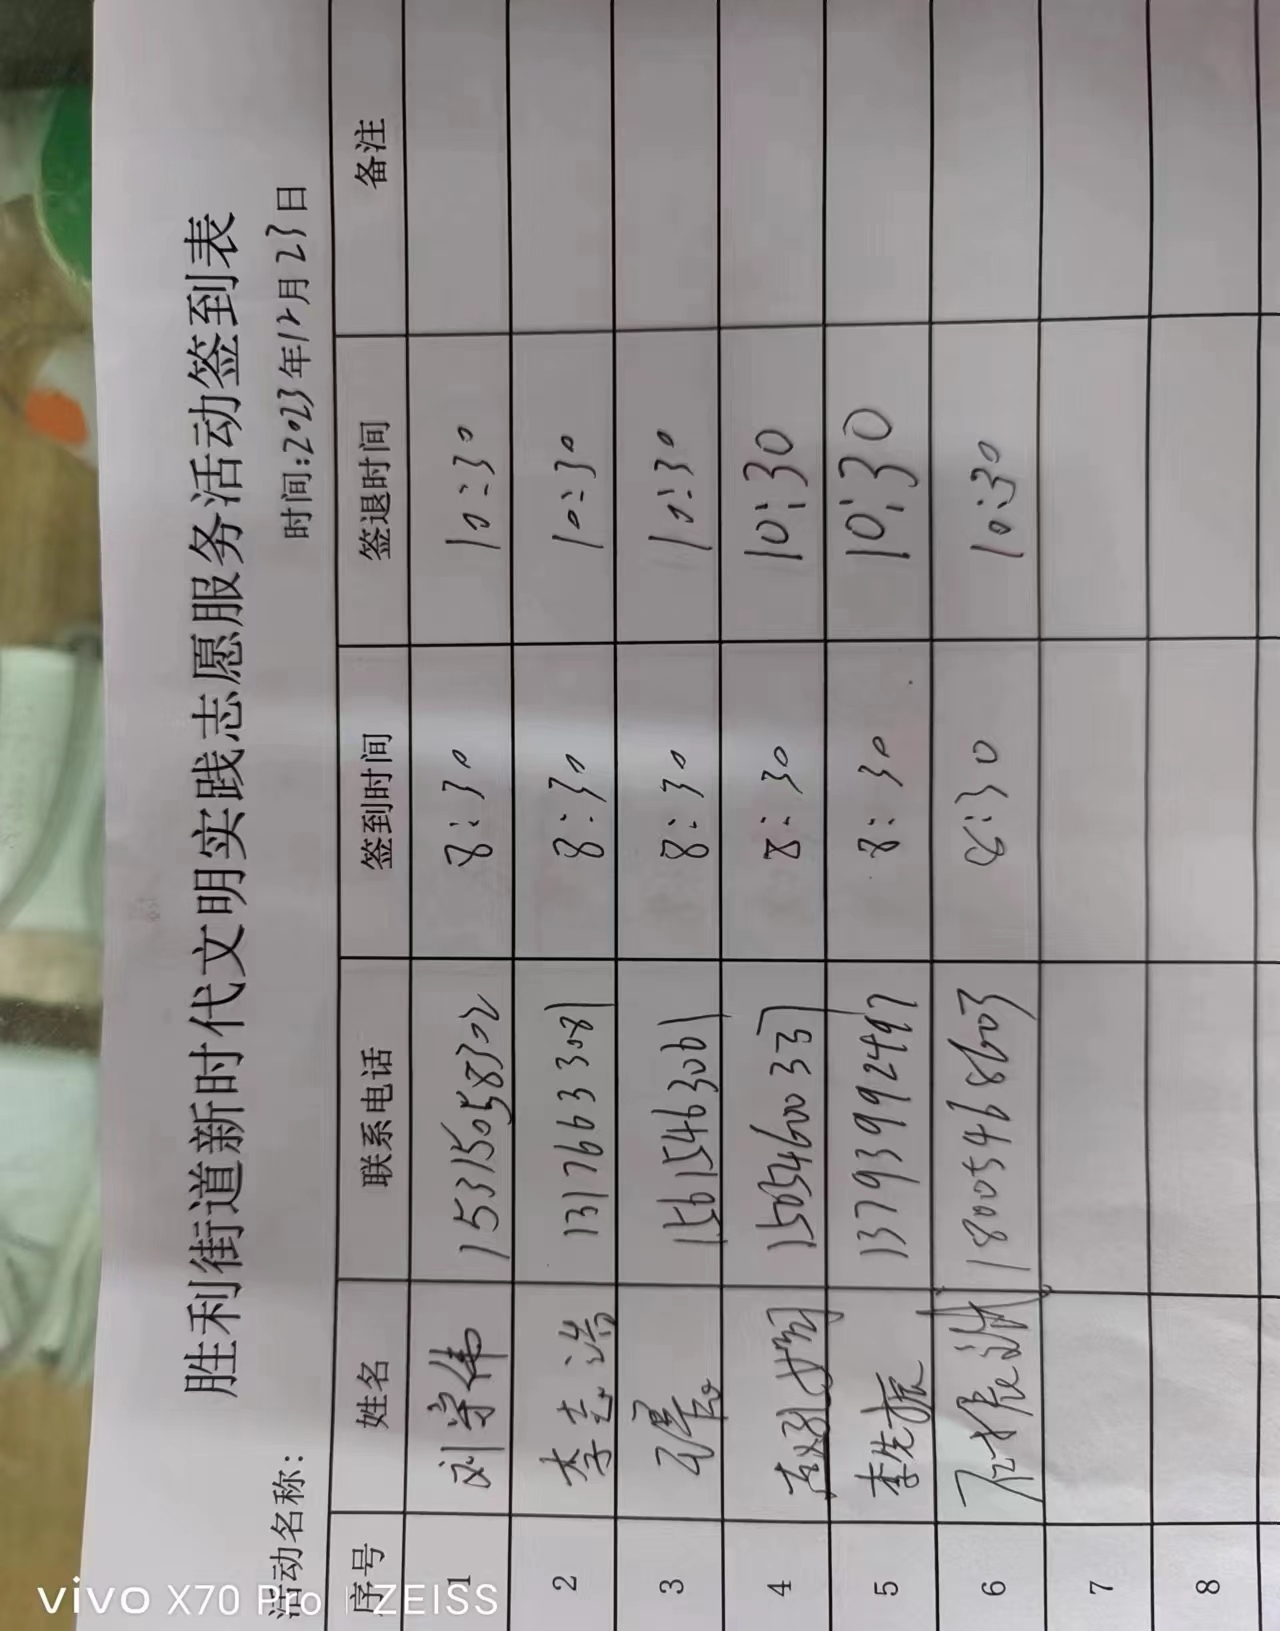 胜利街道新时代文明实践志愿服务活动签到表
活动名称: 时间:2023年12月23日
序号 姓名 联系电话 签到时间 签退时间 备注
1 刘学伟 15315058302 8:30 10:30
2 李志浩 13176633081 8:30 10:30
3 15615463061 8:30 10:30
4 8:30 10:30
5 李先振 13793992497 8:30 10:30
6 18005468603 8:30 10:30
7
8
vivo X70 Pro | ZEISS